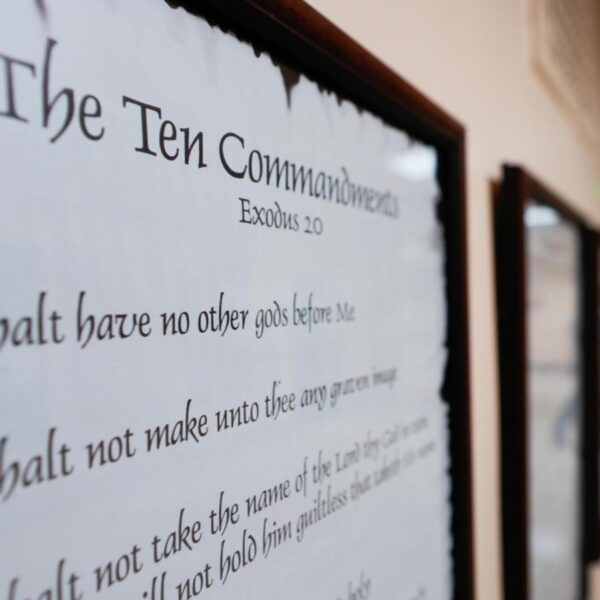 The Ten Commandments
Exodus 20
halt have no other gods before Me
halt not make unto thee any graven image
halt not take the name of the Lord thy God in vain,
ill not hold him guiltless that taketh His name
holy